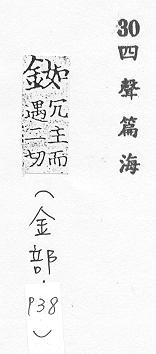 30四聲篇海
銣冗主而
遇二切
（金部.
P38）